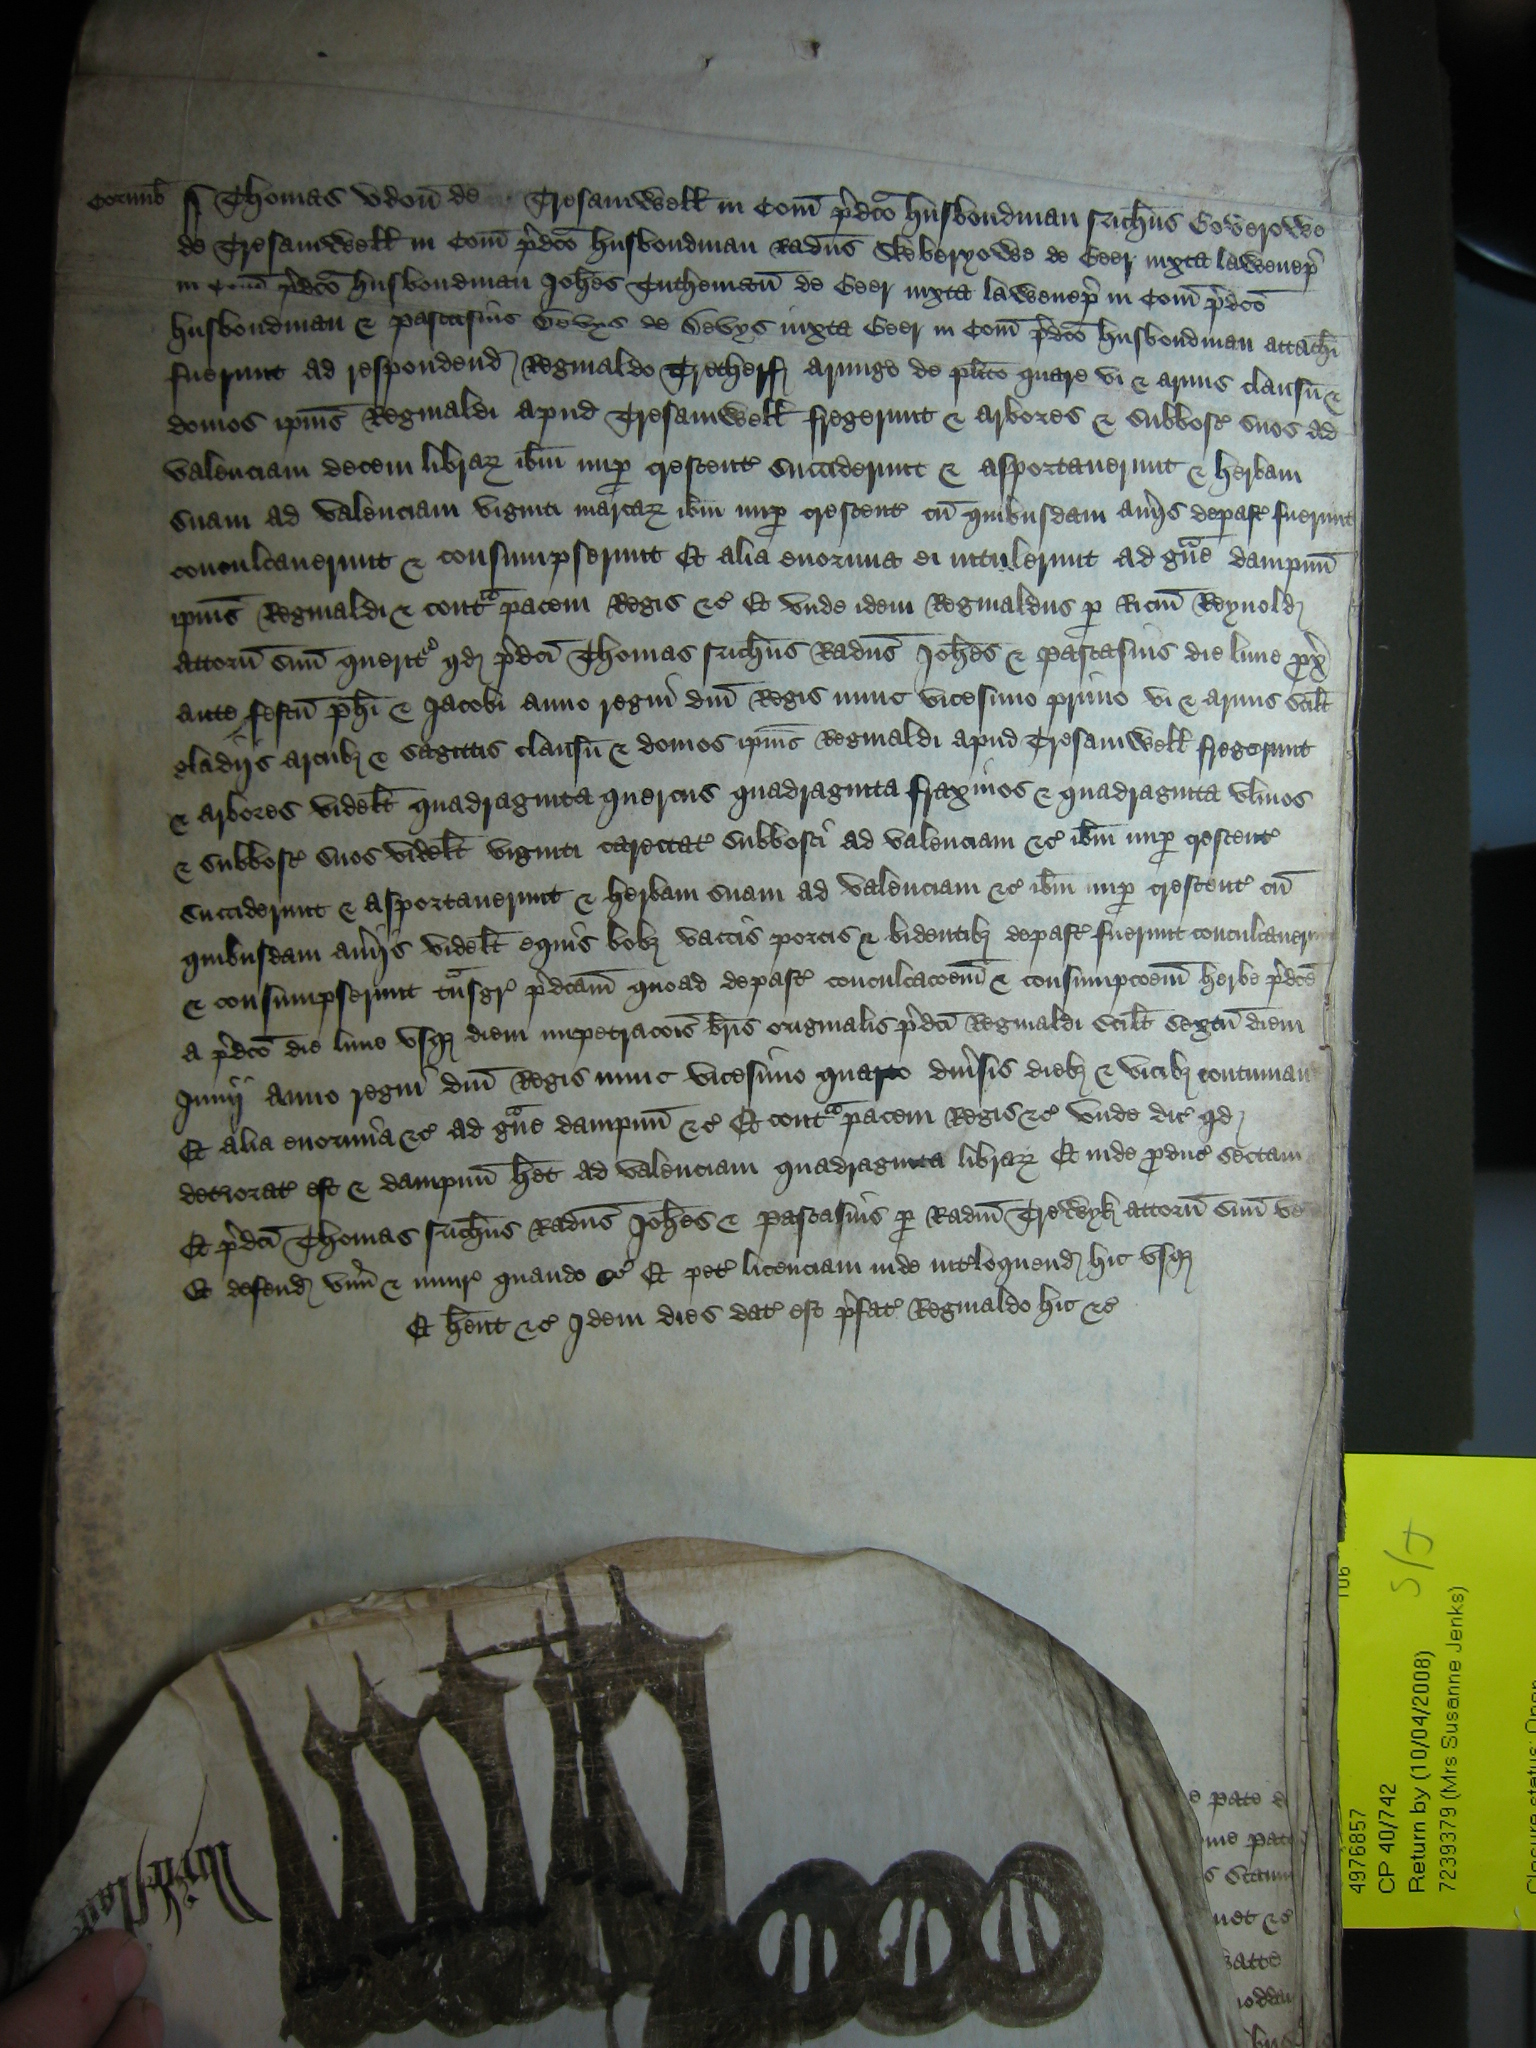 Cornub̄ ſſ Thomas Udon̄ de Tresamwell̄ in Com̄ p̄dc̄o husbondman Mich̄us Goverowe
de Tresamwell̄ in Com̄ p̄dc̄o husbondman Rad̄us Skeberyowe de Geer iuxta lawenep̄
in Com̄ p̄dc̄o husbondman Joh̄es Tutheman̄ de Geer iuxta lawenep̄ in Com̄ p̄dc̄o
husbondman & pascasius de iuxta Geer in Com̄ p̄dc̄o husbondman attach̄
fuerunt ad respondend̄ Reginaldo Tretherf Armigo de pl̄ito quare vi & armis clausū &
domos ipius̄ Reginaldi apud Tresamwell̄ fregerunt & arbores & subbosc̄ suos ad
valenciam decem librar̄ ib̄m nup̄ crescent̄ succiderunt & asportauerunt & herbam
suam ad valenciam viginti marcar̄ ib̄m nup̄ crescent̄ cū quibusdam aīijs depast̄ fuerunt
conculcauerunt & consumpserunt Et alia enormia ei intulerunt ad gūe dampnū
ipius̄ Reginaldi & cont̄ pacem Regis &c̄ Et vnde idem Reginaldus p̄ Ricm̄ Reynold̄
attorn̄ suū querit̄ qd̄ p̄dc̄i Thomas Mich̄us Rad̄us Joh̄es & pascasius die lune p̄x̄
ante festū ph̄i & Jacobi anno regni dn̄i Regis nunc vicesimo primo vi & armis scilt̄
gladijs arcub̄ & sagittis clausū & domos ipius̄ Reginaldi apud Tresamwell̄ fregerunt
& arbores videlt̄ quadraginta quercus quadraginta fraxinos & quadraginta vlmos
& subbosc̄ suos videlt̄ viginti carectat̄ subbosci ad valenciam &c̄ ib̄m nup̄ crescent̄
succiderunt & asportauerunt & herbam suam ad valenciam &c̄ ib̄m nup̄ crescent̄ cū
quibusdam aīijs videlt̄ equis bob̄ vaccis porcis & bidentib̄ depast̄ fuerunt conculcauerunt
& consumpserunt tn̄sgr̄ p̄dc̄am quoad depast̄ conculcac̄oem & consumpc̄oem herbe p̄dc̄e
a p̄dc̄o die lune vsq̄ diem impetrac̄ois br̄is originalis p̄dc̄i Reginaldi scilt̄ sextū diem
Junij anno regni dn̄i Regis nunc vicesimo quarto diūsis dieb̄ & vicib̄ continuan
Et alia enormia &c̄ ad gūe dampnū &c̄ Et cont̄ pacem Regis &c̄ vnde dic̄ qd̄
deteriorat̄ est & dampnū h̄et ad valenciam quadraginta librar̄ Et inde p̄duc̄ sectam
Et p̄dc̄i Thomas Mich̄us Rad̄us Joh̄es & pascasius p̄ Rad̄m Trewyk attorn̄ suū
Et defend̄ vim̄ & iniur̄ quando &c̄ Et pet̄ licenciam inde int̄loquend̄ hic vsq̄
Et h̄ent &c̄ Idem dies dat̄ est p̄fat̄ Reginaldo hic &c̄
106
S/J
4976857
CP 40/742
Return by (10/04/2008)
7239379 (Mrs Susanne Jenks)
Closure status: Open